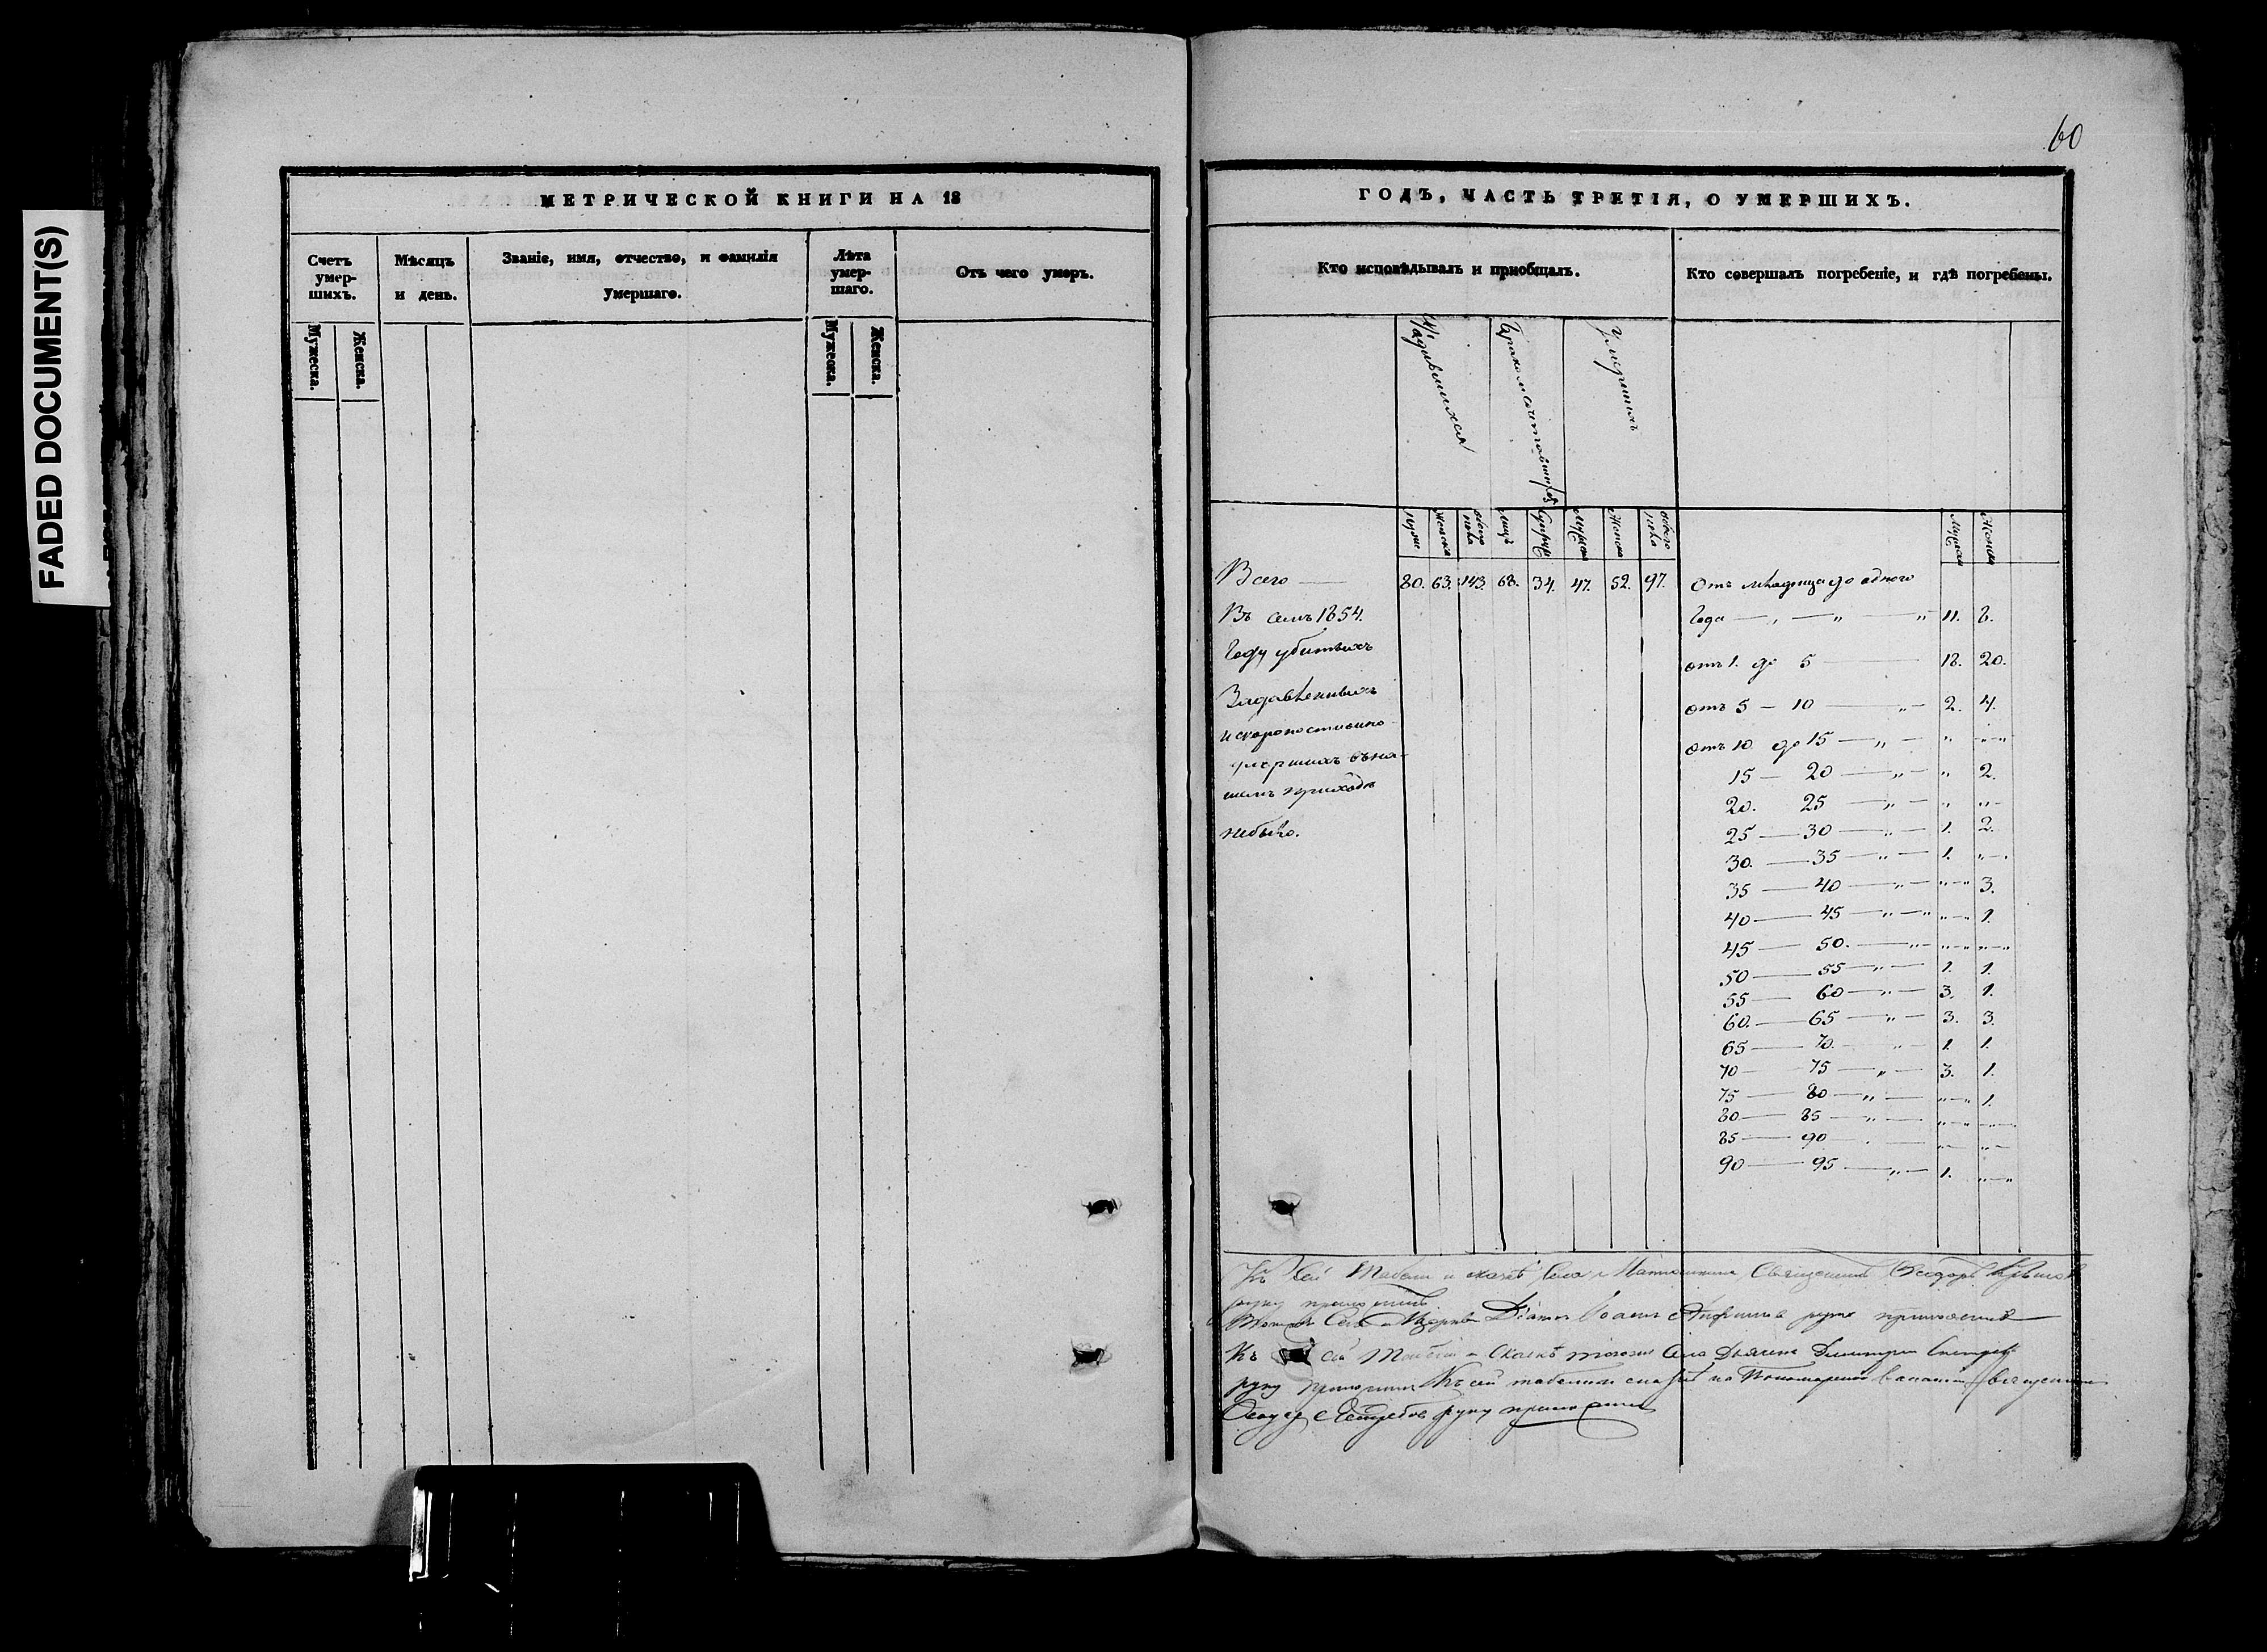 FADED DOCUMENT(S)
60
МЕТРИЧЕСКОЙ КНИГИ НА 18
Счетъ умер-шихъ.
Мужеска.
Женска.
Мѣсяцъ и день.
Званіе, имя, отчество, и фамилія
Умершаго.
Лѣта умер-шаго.
Мужеска.
Женска.
Отъ чего умеръ.
ГОДЪ, ЧАСТЬ ТРЕТІЯ, О УМЕРШИХЪ.
Кто исповѣдывалъ и пріобщалъ.
Кто совершалъ погребеніе, и гдѣ погребены.
Умершихъ
Женска
обоего пола
лицъ
Женска
обоего пола
Всего — 80. 63. 143. 68. 34. 47. 52. 97.
Въ семъ 1854.
Году убитыхъ
Задавленныхъ
и скоропостижно
умершихъ въ на-
шемъ приходѣ
небыло.
Отъ мѣсяца до одного
Года — „ — „ „ 11. 8.
отъ 1. до 5 — 18. 20.
отъ 5 — 10 — „ — 2. 4.
отъ 10. до 15 — „ — „ — „
15 — 20 — „ — „ 2.
20. 25 — „ — „ „ —
25 — 30 — „ — 1. 2.
30. — 35 — „ — 1. „ — .
35 — 40 — „ — „ — „ 3.
40 — 45 — „ — „ „ — 1.
45 — 50. — „ — „ — „ „ — „
50 — 55 — „ — 1. 1.
55 — 60 — „ — 3. 1.
60. — 65 — „ — 3. 3.
65 — 70. — „ — 1. 1.
70 — 75 — „ — 3. 1.
75 — 80 — „ — „ — „ 1.
80 — 85 — „ — „ — „ „ —
85 — 90 — . — „ — „ —
90 — 95 — „ — 1. „ — „
Къ сей Табели села Священникъ Ѳеодоръ
руку приложилъ
Діаконъ Іоаннъ руку приложилъ
Къ сей Табели тогоже Села Дьячекъ Димитрій
руку приложилъ Къ сей табели
руку приложилъ